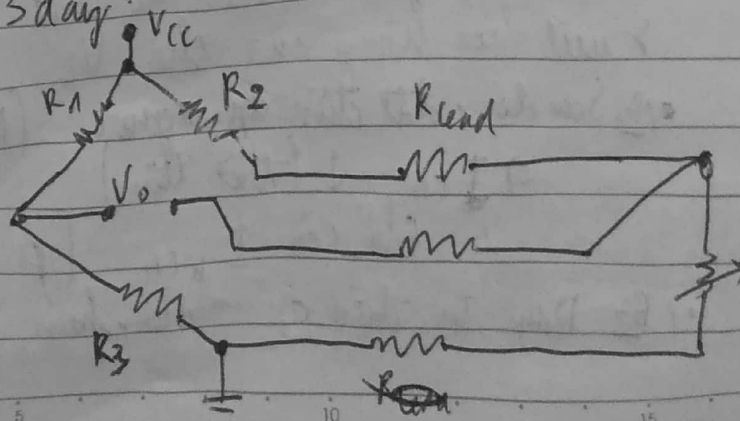 3 day
Vcc
R1
R2
Rlead
Vo
R3
5 10 15